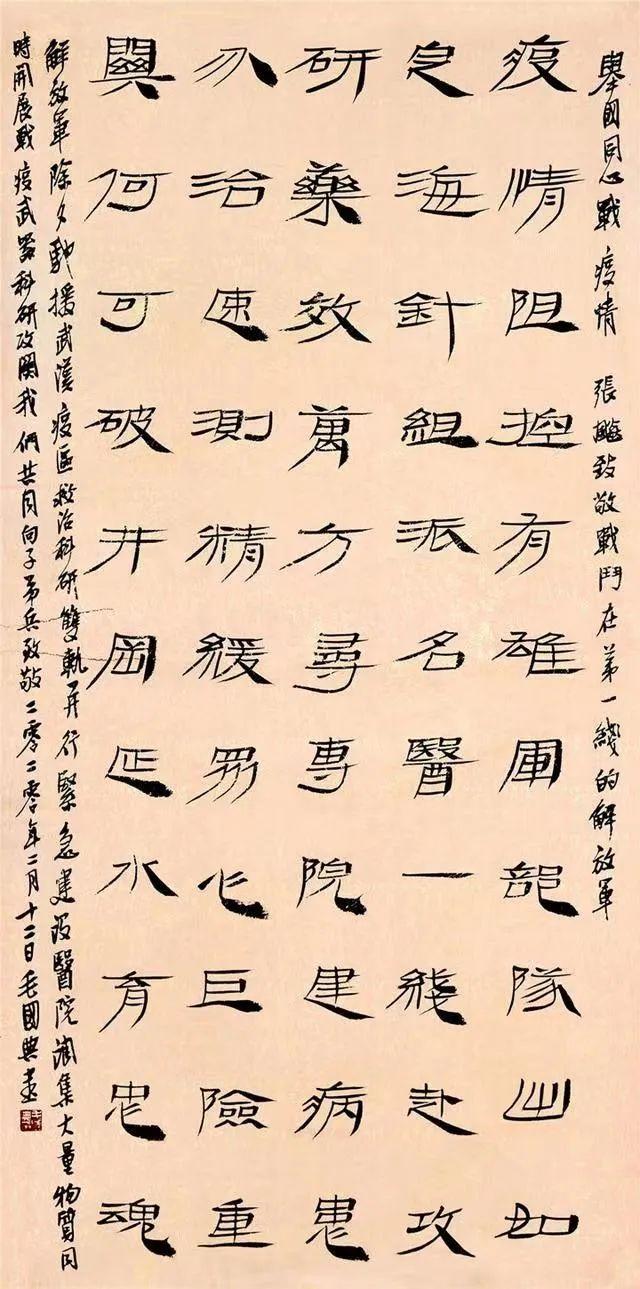 舉國同心戰疫情 張飈致敬戰鬥在第一綫的解放軍
疫情阻控有雄軍部隊出如
定海針組派名醫一綫赴攻
研藥效萬方尋專院建病患
分治速測精巨險重
關何可破井岡延水育忠魂
解放軍除夕馳援武漢疫區救治科研雙軌并行緊急建設醫院調集大量物質同
時開展戰疫武器科研攻關我們共同向子弟兵致敬二零二零年二月十二日毛國典書